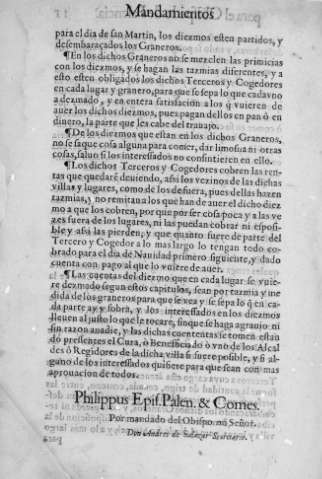 Mandamientos
para el dia de san Martin, los diezmos esten partidos, y
desembaraçados los Graneros.
¶En los dichos Graneros no se mezclen las primicias
con los diezmos, y se hagan las tazmias diferentes, y a
esto esten obligados los dichos Terceros y Cogedores
en cada lugar y granero, para que se sepa lo que cada vno
a dezmado, y en entera satisfacion a los q̃ vuieren de
auer los dichos diezmos, pues pagan dellos en pan ò en
dinero, la parte que les cabe del trabajo.
¶De los diezmos que estan en los dichos Graneros,
no se saque cosa alguna para comer, dar limosna ni otras
cosas, saluo si los interessados no consintieren en ello.
¶Los dichos Terceros y Cogedores cobren las ren-
tas que quedarē deuiendo, asi los vezinos de las dichas
villas y lugares, como de los de fuera, pues dellas hazen
tazmias, y no remitan a los que han de auer el dicho diez
mo a que los cobren, por que por ser cosa poca y a las ve
zes fuera de los lugares, ni las puedan cobrar ni es posi-
ble, y asi las pierden; y que quanto fuere de parte del
Tercero y Cogedor a lo mas largo lo tengan todo co-
brado para el dia de Nauidad primero siguiēte, y dado
cuenta con pago al que lo vuiere de auer.
¶Las cuentas del diezmo que en cada lugar se vuie
re dezmado segun estos capitulos, sean por tazmia y me
dida de los graneros para que se vea y se sepa lo q̃ a ca-
da parte ay y sobra, y los interessados en los diezmos
lleuen al justo lo que le tocare, sin que se haga agrauio ni
sin razon a nadie, y las dichas cuentas se tomen estan
do presentes el Cura, ò Beneficiado ò vno de los Alcal
des ò Regidores de la dicha villa si fuere posible, y si al-
guno de los interessados quisiere para que sean con mas
aprouacion de todos.
Philippus Epis. Palen. & Comes.
Por mandado del Obispo. mi Señor.
Don Andres de Salazar Secretario.